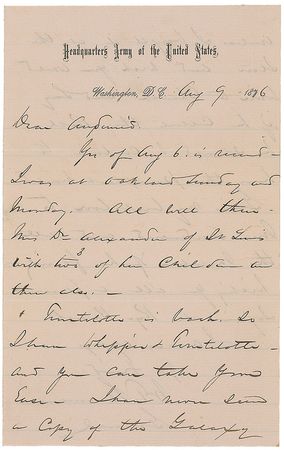 Headquarters Army of the United States,
Washington, D.C. Aug 9 1876
Dear
Yrs of Aug 6. is recd —
I was at Oakland Sunday and
Monday. All well there —
Mrs Dr Alexander of St Louis
with two of her Children are
there also. —
is back. So
I have Whipple &
and you can take your
Ease — I have
a Copy of the Galaxy